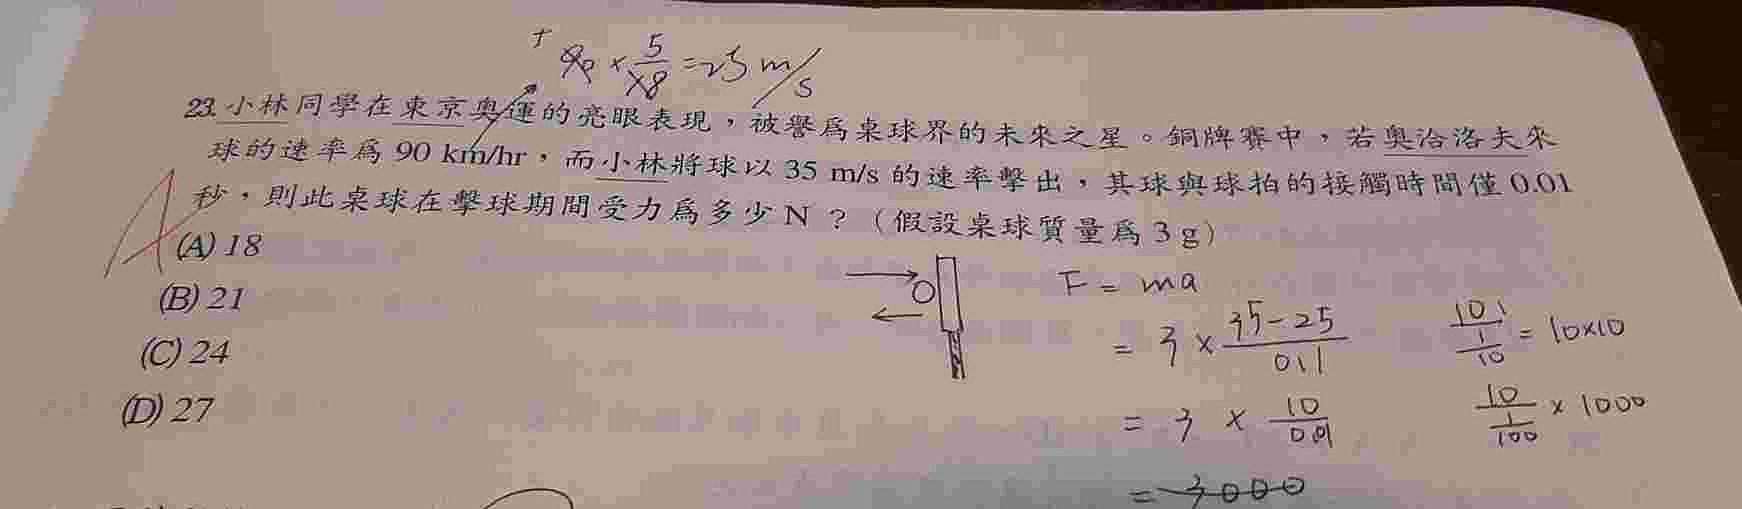 90 × 5/18 = 25 m/s
23. 小林同學在東京奧運的亮眼表現，被譽為桌球界的未來之星。銅牌賽中，若奧洽洛夫來
球的速率為 90 km/hr，而小林將球以 35 m/s 的速率擊出，其球與球拍的接觸時間僅 0.01
秒，則此桌球在擊球期間受力為多少 N？（假設桌球質量為 3 g）
A
(A) 18
(B) 21
(C) 24
(D) 27
F = ma
= 3 × 35-25
= 3 × 10/0.01
= 3000
= 10×10
10 / 1/100 × 1000